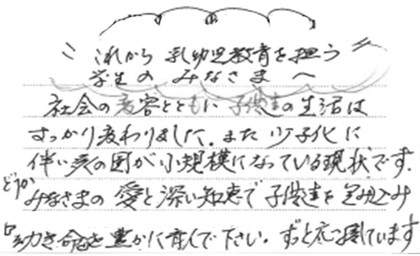 これから 乳幼児教育を担う
学生の みなさまへ
社会の変容とともに 子供達の生活は
すっかり変わりました。また 少子化に
伴い 園が小規模になっている現状です。
どうか
みなさまの 愛と深い知恵で 子供達を包み込み
幼き命を豊かに育んで下さい。ずっと応援しています